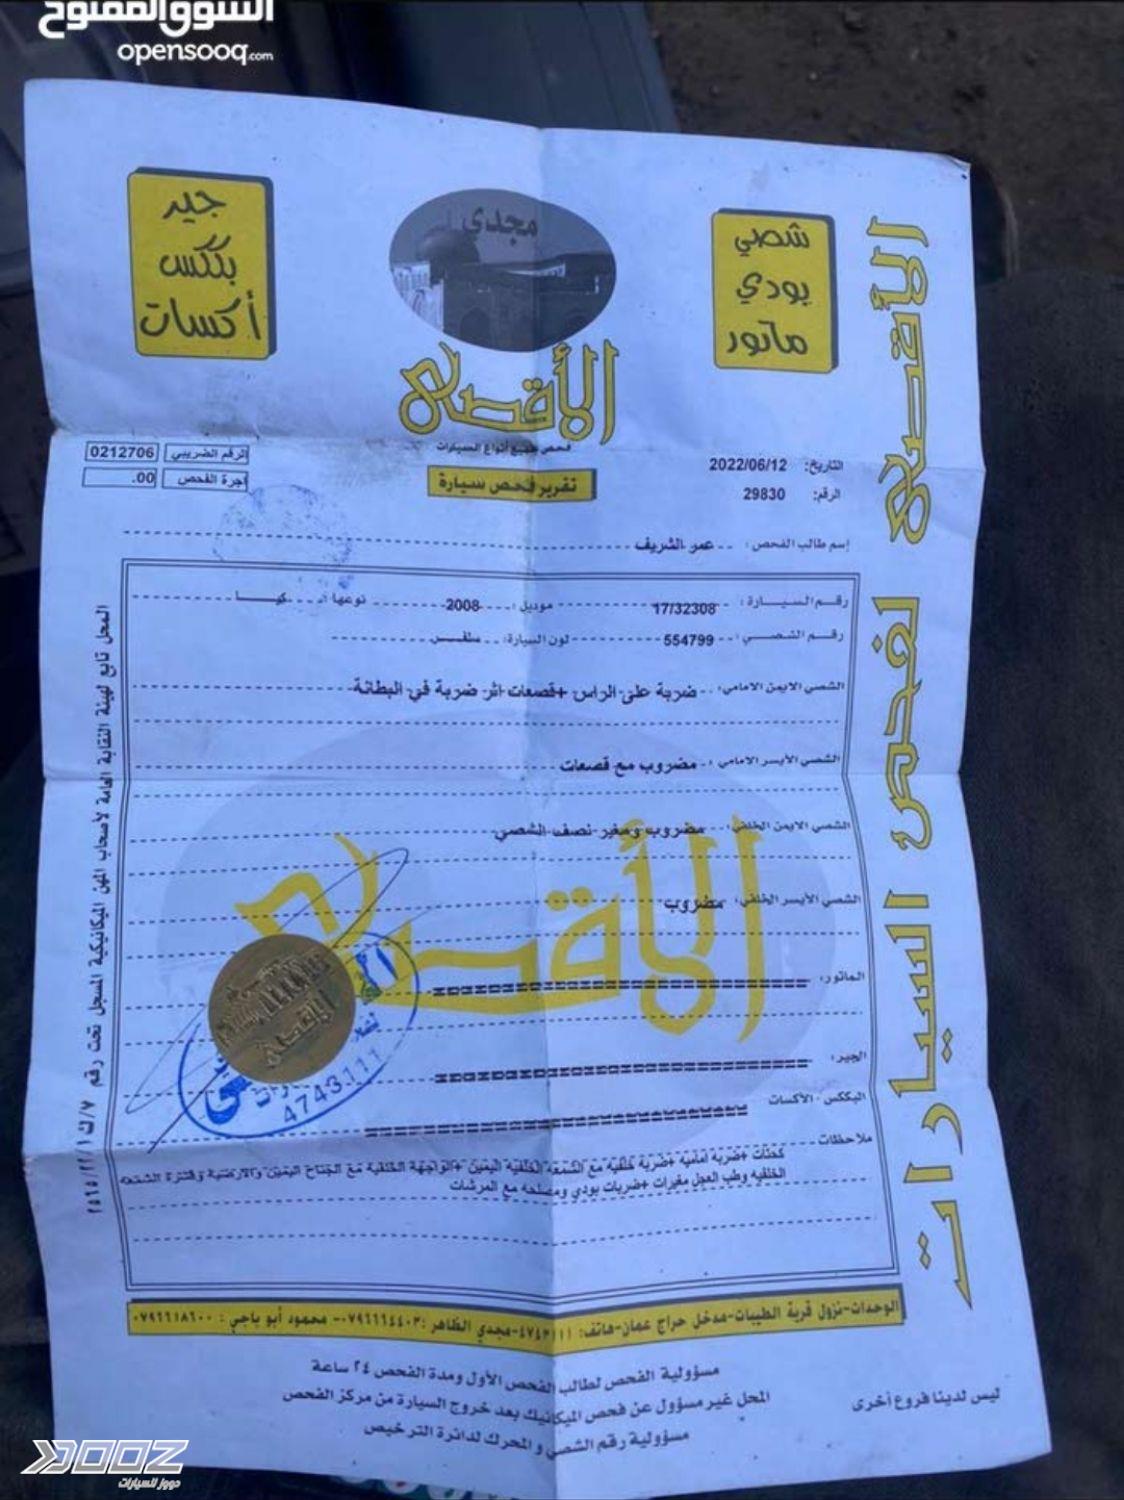 السوق المفتوح
opensooq.com
جير
بككس
أكسات
مجدي
الأقصى
فحص جميع أنواع السيارات
تقرير فحص سيارة
شصي
بودي
ماتور
الأقصى لفحص السيارات
الرقم الضريبي 0212706
اجرة الفحص .00
التاريخ: 2022/06/12
الرقم: 29830
إسم طالب الفحص : عمر الشريف
رقم السيارة : 17/32308 موديل : 2008 نوعها : كيا
رقم الشصي : 554799 لون السيارة :
الشصي الايمن الامامي : ضربة على الراس +قصعات اثر ضربة في البطانة
الشصي الأيسر الامامي : مضروب مع قصعات
الشصي الايمن الخلفي : مضروب ومغير نصف الشصي
الشصي الأيسر الخلفي : مضروب
الماتور:
الجير:
البككس - الأكسات
ملاحظات
كحتات +ضربة امامية +ضربة خلفية مع الشمعه الخلفية اليمين +الواجهة الخلفية مع الجناح اليمين والارضية
الخلفيه وطب العجل مغيرات +ضربات بودي ومصلحه مع المرشات
الأقصى
4743111
المحل تابع لهيئة النقابة العامة لأصحاب المهن الميكانيكية المسجل تحت رقم
الوحدات-نزول قرية الطيبات-مدخل حراج عمان-هاتف: ٤٧٤٣١١١-مجدي الظاهر :٠٧٩٦٦٦٤٤٠٣- محمود أبو باجي : ٠٧٩٦٦١٨٦٠٠
مسؤولية الفحص لطالب الفحص الأول ومدة الفحص ٢٤ ساعة
المحل غير مسؤول عن فحص الميكانيك بعد خروج السيارة من مركز الفحص
مسؤولية رقم الشصي و المحرك لدائرة الترخيص
ليس لدينا فروع أخرى
DOOZ
دووز للسيارات